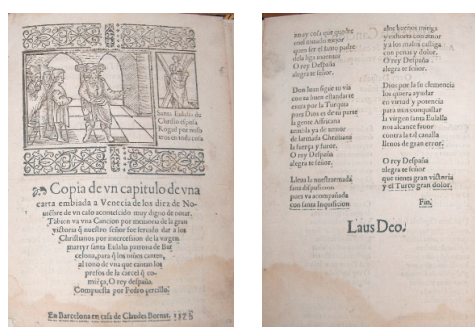 Santa Eulalia du
Christo espera
Rogad por nosotros
Copia de vn capitulo de vna
carta embiada a Venecia de los diez de No-
uiembre de vn caso acontecido muy digno de notar.
Tãbien va vna Cancion por memoria de la gran
victoria q̃ nuestro señor fue seruido dar a los
Christianos por intercession de la virgen
martyr santa Eulalia patrona de Bar
celona, para q̃ los niños canten,
al tono de vna que cantan los
presos de la carcel q̃ co-
miẽça, O rey despaña.
Compuesta por Pedro
En Barcelona en casa de Claudes Bornat.
no ay cosa que
en el mundo mejor
quien fue el
dela liga inuentor
O rey Despaña
alegra te señor.
Don Iuan
con su buen estandarte
entra por la Turquia
para Dios es de su parte
la gente
ya de
de la armada Christiana
la fuerça y furor.
O rey Despaña
alegra te señor.
Lleua la nuestra armada
disposicion
pues va acompañada
con santa Inquisicion
a los buenos
y
y a los malos castiga
con penas y dolor.
O rey Despaña
alegra te señor.
Dios por su clemencia
los quiera ayudar
en virtud y potencia
para este conquistar
la virgen santa Eulalia
nos alcance fauor
contra la tal canalla
llenos de gran error.
O rey Despaña
alegra te señor
que tienes gran victoria
y el Turco gran dolor.
Fin.
Laus Deo.